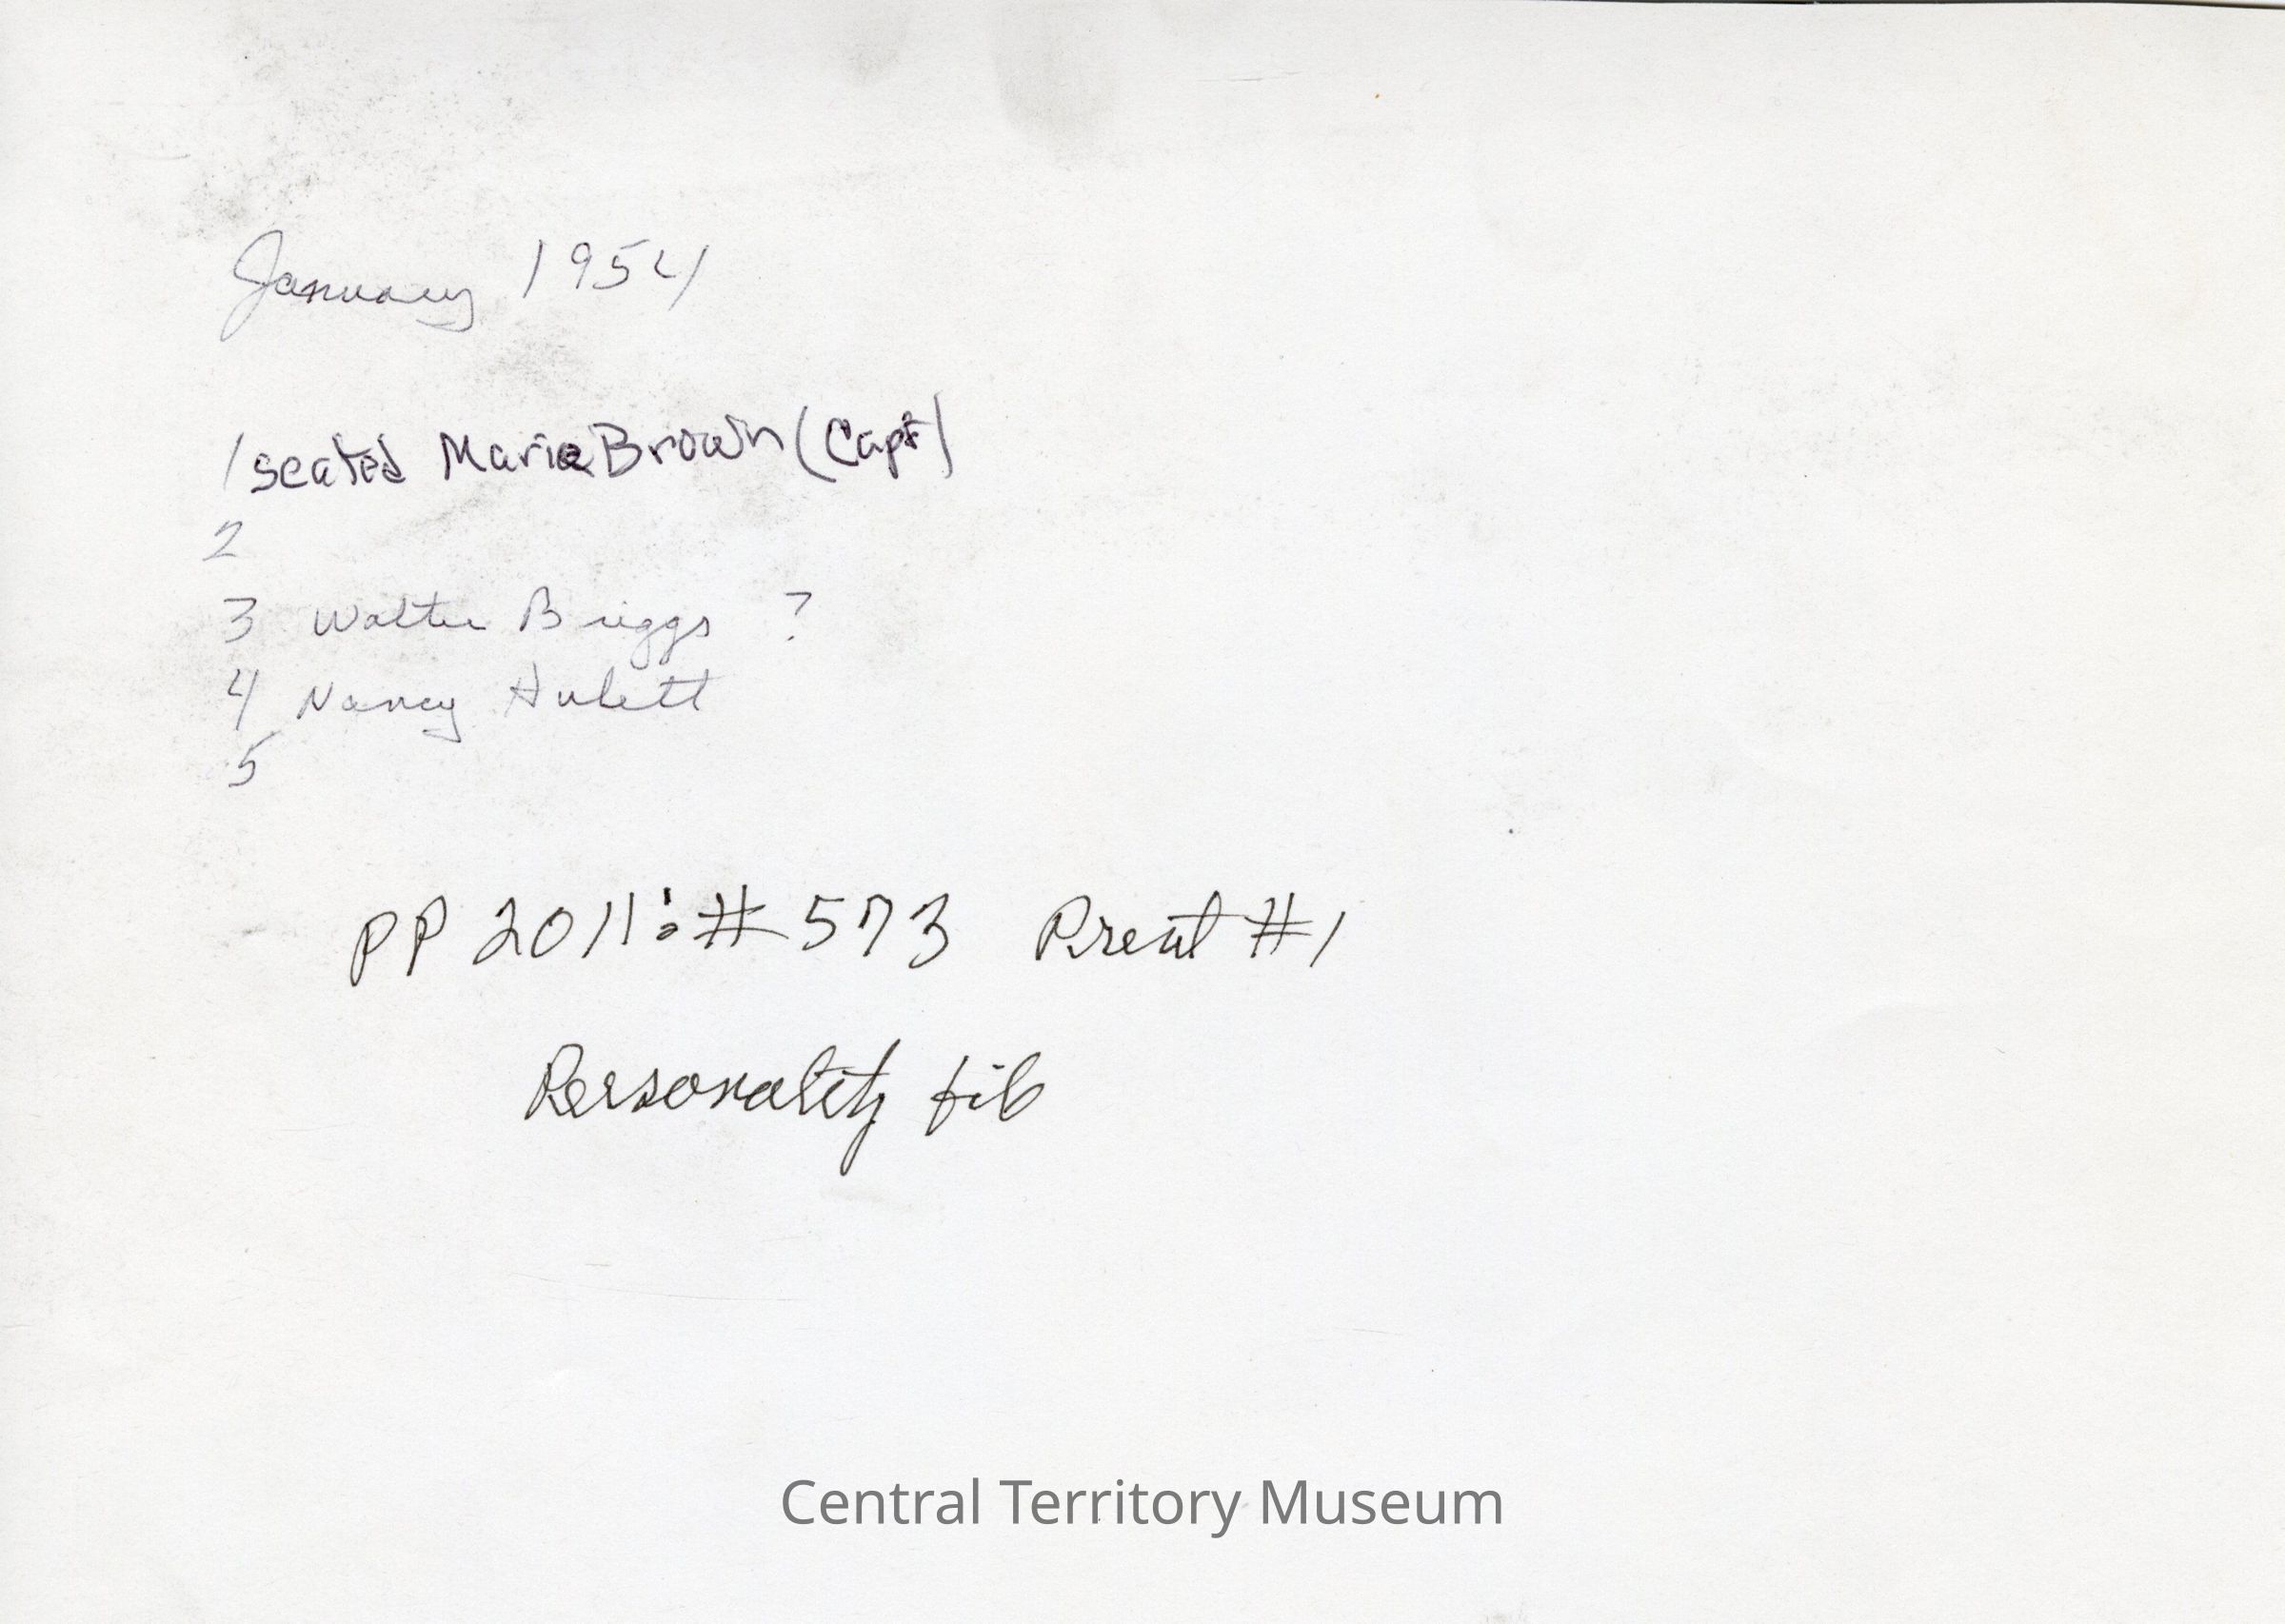 January 1954
1 seated Marie Brown (Capt)
2
3 Walter Briggs ?
4 Nancy Hulett
5
PP 2011:#573 Print #1
Personality file
Central Territory Museum